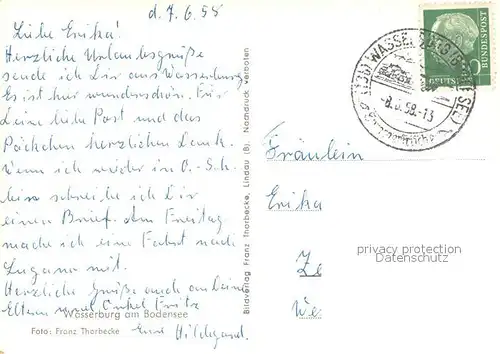 d. 7.6.58
Liebe Erika!
Herzliche Urlaubsgrüße
sende ich Dir aus Wasserburg.
Es ist hier wunderschön. Für
Deine liebe Post und das
Päckchen herzlichen Dank.
Wenn ich wieder in O.-Sch.
bin schreibe ich Dir
einen Brief. Am Freitag
mache ich eine Fahrt nach
Lugano mit.
Herzliche Grüße auch an Deine
Eltern und Onkel Fritz
Eure Hildegard.
Wasserburg am Bodensee
Foto: Franz Thorbecke
Bildverlag Franz Thorbecke, Lindau (B). Nachdruck verboten
WASSERBURG (BODENSEE)
-8.6.58.-13
DEUTSCHE BUNDESPOST
10
Fräulein
Erika
Ze
We
privacy protection
Datenschutz